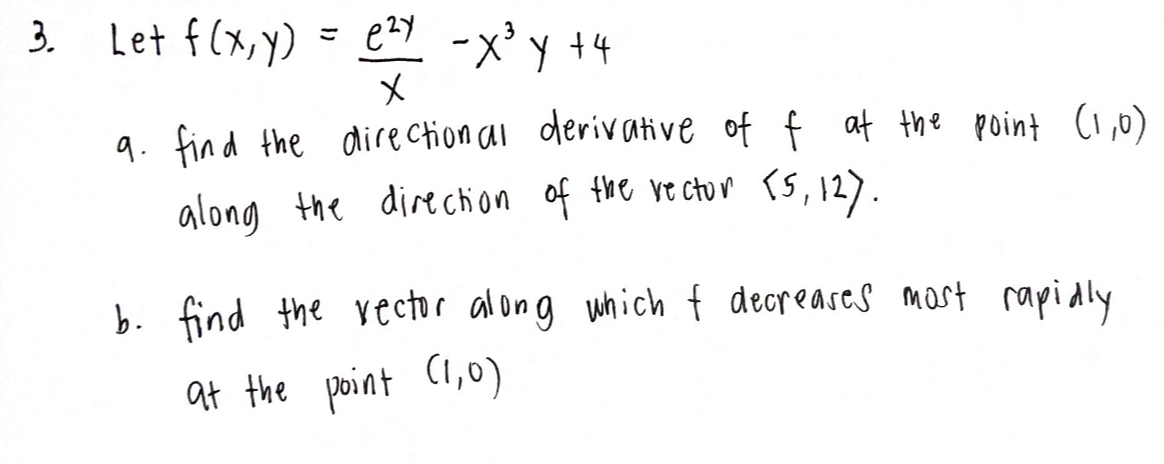 3. Let f(x,y) = e^{2y}/x - x³y + 4
a. find the directional derivative of f at the point (1,0)
along the direction of the vector ⟨5,12⟩.
b. find the vector along which f decreases most rapidly
at the point (1,0)